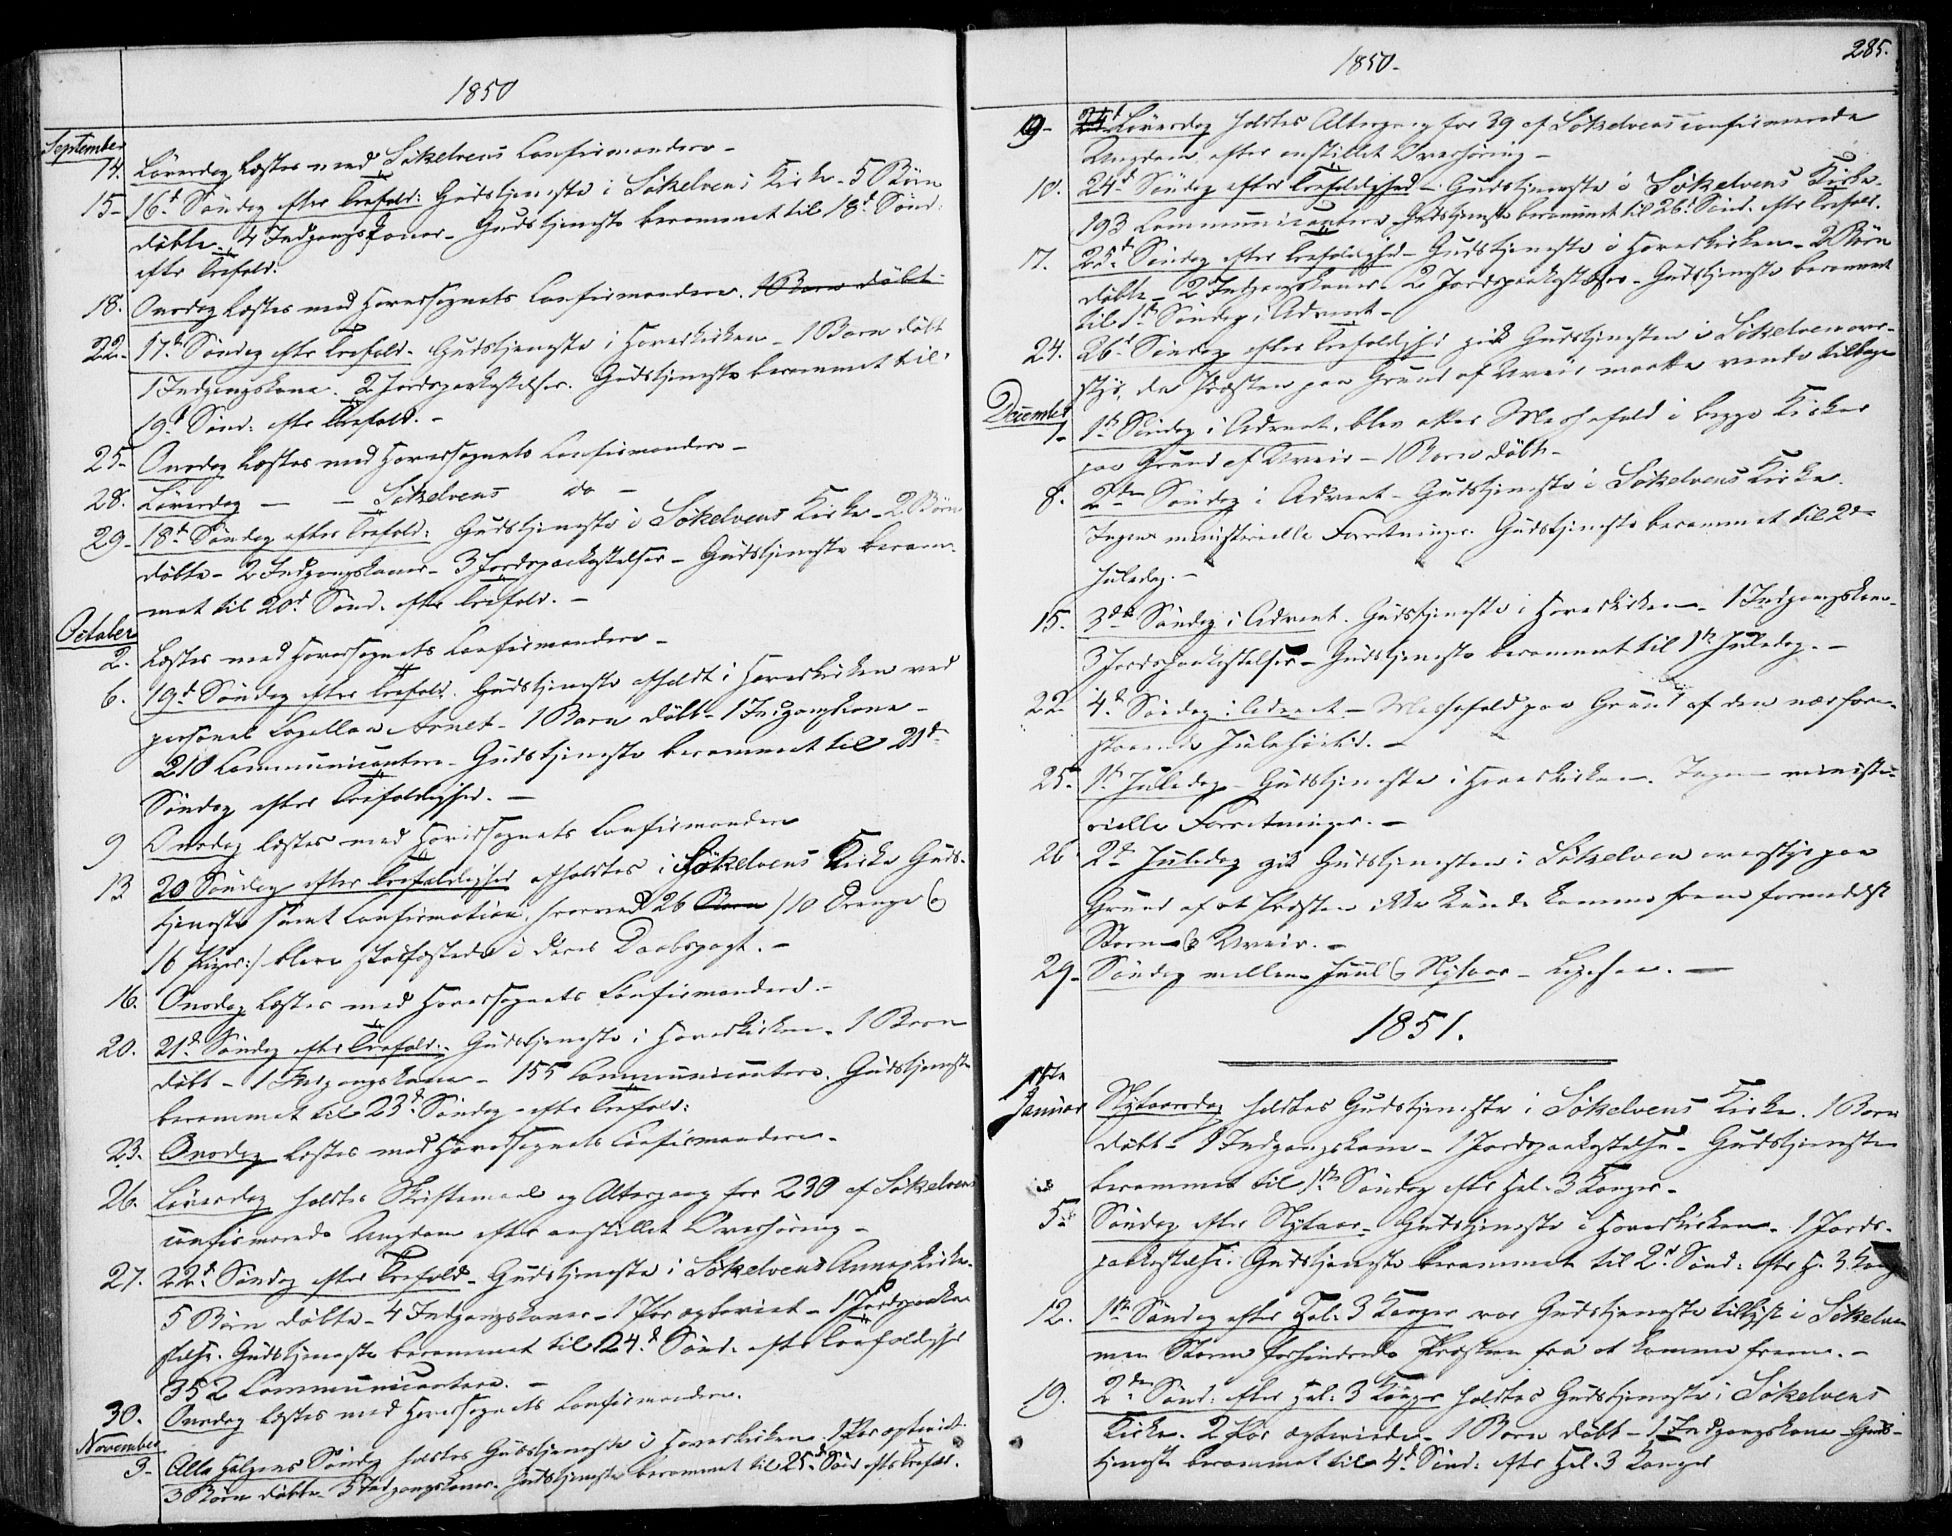 1850
September
14. Löverdag læstes med Sökelvens Confirmander –
15 – 16d Söndag efter Trefold: Gudstjeneste i Sökelvens Kirke – 5 Börn
döbte – 4 Indgangskoner – Gudstjeneste berammet til 18d Sönd:
efter Trefold:
18. Onsdag læstes med Hovedsognets Confirmander. 1 Barn döbt –
22 – 17d Söndag efter Trefold – Gudstjeneste i Hovedkirken – 1 Barn döbt
1 Indgangskone. 2 Jordspaakastelser. Gudstjeneste berammet til
19d Sönd: efter Trefold. –
25 – Onsdag læstes med Hovedsognets Confirmander –
28. Löverdag – – Sökelvens do –
29 – 18d Söndag efter Trefold: Gudstjeneste i Sökelvens Kirke – 2 Börn
döbte – 2 Indgangskoner – 3 Jordspaakastelser – Gudstjeneste beram-
met til 20d Sönd. efter Trefold. –
October
2. Læstes med Hovedsognets Confirmander –
6. 19d Söndag efter Trefold. Gudstjeneste afholdt i Hovedkirken ved
personel Capellan Arnet – 1 Barn döbt – 1 Indgangskone –
210 Communicantere – Gudstjeneste berammet til 21d
Söndag efter Trefoldighed. –
9 Onsdag læstes med Hovedsognets Confirmander
13 20 Söndag efter Trefoldighed afholdtes i Sökelvens Kirke Guds-
tjeneste samt Confirmation, hvorved 26 Börn /10 Drenge &
16 Piger:/ bleve stadfæstede i deres Daabspagt. –
16. Onsdag læstes med Hovedsognets Confirmander. –
20. 21d Söndag efter Trefold: – Gudstjeneste i Hovedkirken – 1 Barn
döbt – 1 Indgangskone – 155 Communicantere. Gudstjeneste
berammet til 23d Söndag efter Trefold:
23. Onsdag læstes med Hovedsognets Confirmander –
26. Löverdag holdtes Skriftemaal og Altergang for 230 af Sökelvens
confirmerede Ungdom efter anstillet Overhöring –
27. 22d Söndag efter Trefold – Gudstjeneste i Sökelvens Annexkirke.
5 Börn döbte – 4 Indgangskoner – 1 Par copuleret – 1 Jordspaaka-
stelse. Gudstjeneste berammet til 24d Sönd. efter Trefoldighed
352 Communicantere. –
30. Onsdag læstes med Hovedsognets Confirmander.
November
3 – Alle Helgens Söndag holdtes Gudstjeneste i Hovedkirken. 1 Par
3 Börn döbte – 5 Indgangskoner. Gudstjeneste berammet til 25d Sönd efter Trefold.
1850 –
285.
9 – 24d Löverdag holdtes Altergang for 39 af Sökelvens confirmerede
Ungdom efter anstillet Overhöring –
10. 24d Söndag efter Trefoldighed – Gudstjeneste i Sökelvens Kirke.
193 Communicantere – Gudstjeneste berammet til 26d Sönd. efter Trefold.
17. 25d Söndag efter Trefoldighed – Gudstjeneste i Hovedkirken – 2 Börn
döbte – 2 Indgangskoner 2 Jordspaakastelser – Gudstjeneste berammet
til 1ste Söndag i Advent –
24. 26d Söndag efter Trefoldighed gik Gudstjenesten i Sökelven over-
styr, da Præsten paa Grund af Uveir maatte vende tilbage
December
1 – 1ste Söndag i Advent, blev atter Messefald i begge Kirker
paa Grund af Uveir – 1 Barn döbt –
8. 2den Söndag i Advent – Gudstjeneste i Sökelvens Kirke.
Ingen ministerielle Forretninger. Gudstjeneste berammet til 2den
Juledag. –
15. 3die Söndag i Advent. Gudstjeneste i Hovedkirken – 1 Indgangskone –
3 Jordspaakastelser – Gudstjeneste berammet til 1ste Juledag. –
22 4de Söndag i Advent – Messefald paa Grund af den nærfore-
staaende Julehöitid. –
25 – 1ste Juledag – Gudstjeneste i Hovedkirken. Ingen ministe-
rielle Forretninger. –
26 2den Juledag gik Gudstjenesten i Sökelven overstyr paa
Grund af at Præsten ikke kunde komme frem formedelst
Storm & Uveir. –
29 – Söndag mellem Juul & Nytaar – Ligesaa. –
1851.
1ste
Januar Nytaarsdag holdtes Gudstjeneste i Sökelvens Kirke. 1 Barn
döbt – 1 Indgangskone – 1 Jordspaakastelse – Gudstjenesten
berammet til 1ste Söndag efter Hel. 3 Konger –
5 – Söndag efter Nytaar – Gudstjeneste i Hovedkirken – 1 Jords-
paakastelse. Gudstjeneste berammet til 2d Sönd: efter H. 3 Kong
12. 1ste Söndag efter Hel. 3 Konger var Gudstjeneste tillyst i Sökelven
men Storm forhindrede Præsten fra at komme frem. –
19. 2den Sönd: efter Hel. 3 Konger holdtes Gudstjeneste i Sökelvens
Kirke. 2 Par copulerede – 1 Barn döbt – 1 Indgangskone – Guds-
tjeneste berammet til 4d Sönd: efter Hel. 3 Konger